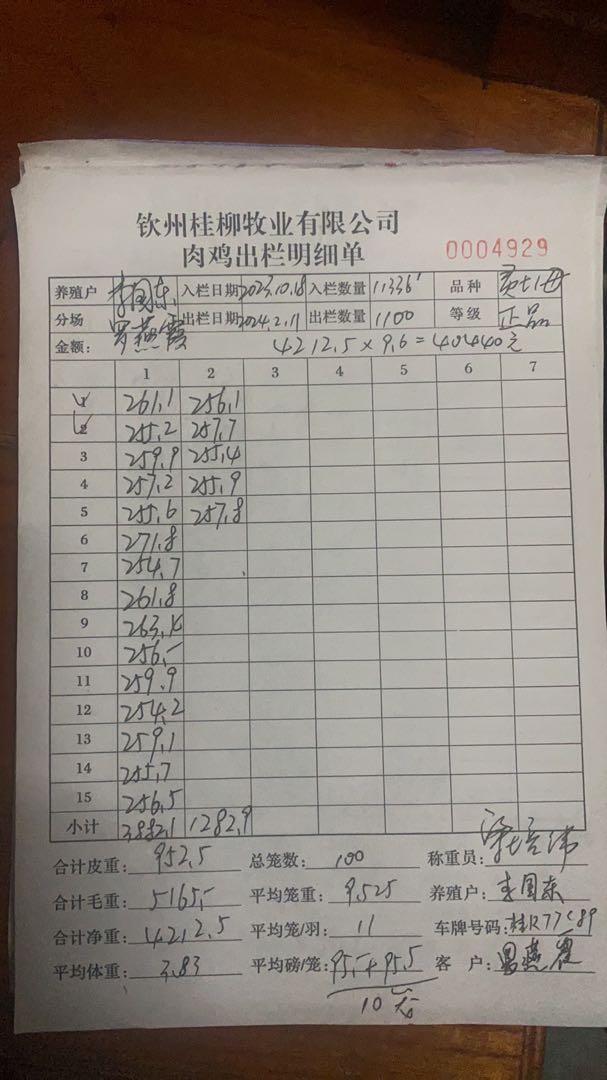 钦州桂柳牧业有限公司
肉鸡出栏明细单 0004929
养殖户 李国东 入栏日期 2023.10.18 入栏数量 11336 品种
分场 罗燕霞 出栏日期 2024.2.11 出栏数量 1100 等级 正品
金额: 4212.5×9.6=40440元
1 2 3 4 5 6 7
1 261.1 256.1
2 255.2 257.7
3 259.9 255.4
4 257.2 255.9
5 255.6 257.8
6 271.8
7 254.7
8 261.8
9
10 256.-
11 259.9
12 254.2
13 259.1
14 255.7
15 256.5
小计 3882.1 1282.9
合计皮重: 952.5 总笼数: 100 称重员:
合计毛重: 5165.- 平均笼重: 9.525 养殖户: 李国东
合计净重: 4212.5 平均笼/羽: 11 车牌号码:
平均体重: 3.83 平均磅/笼: 95.-+95.5 客户:
10